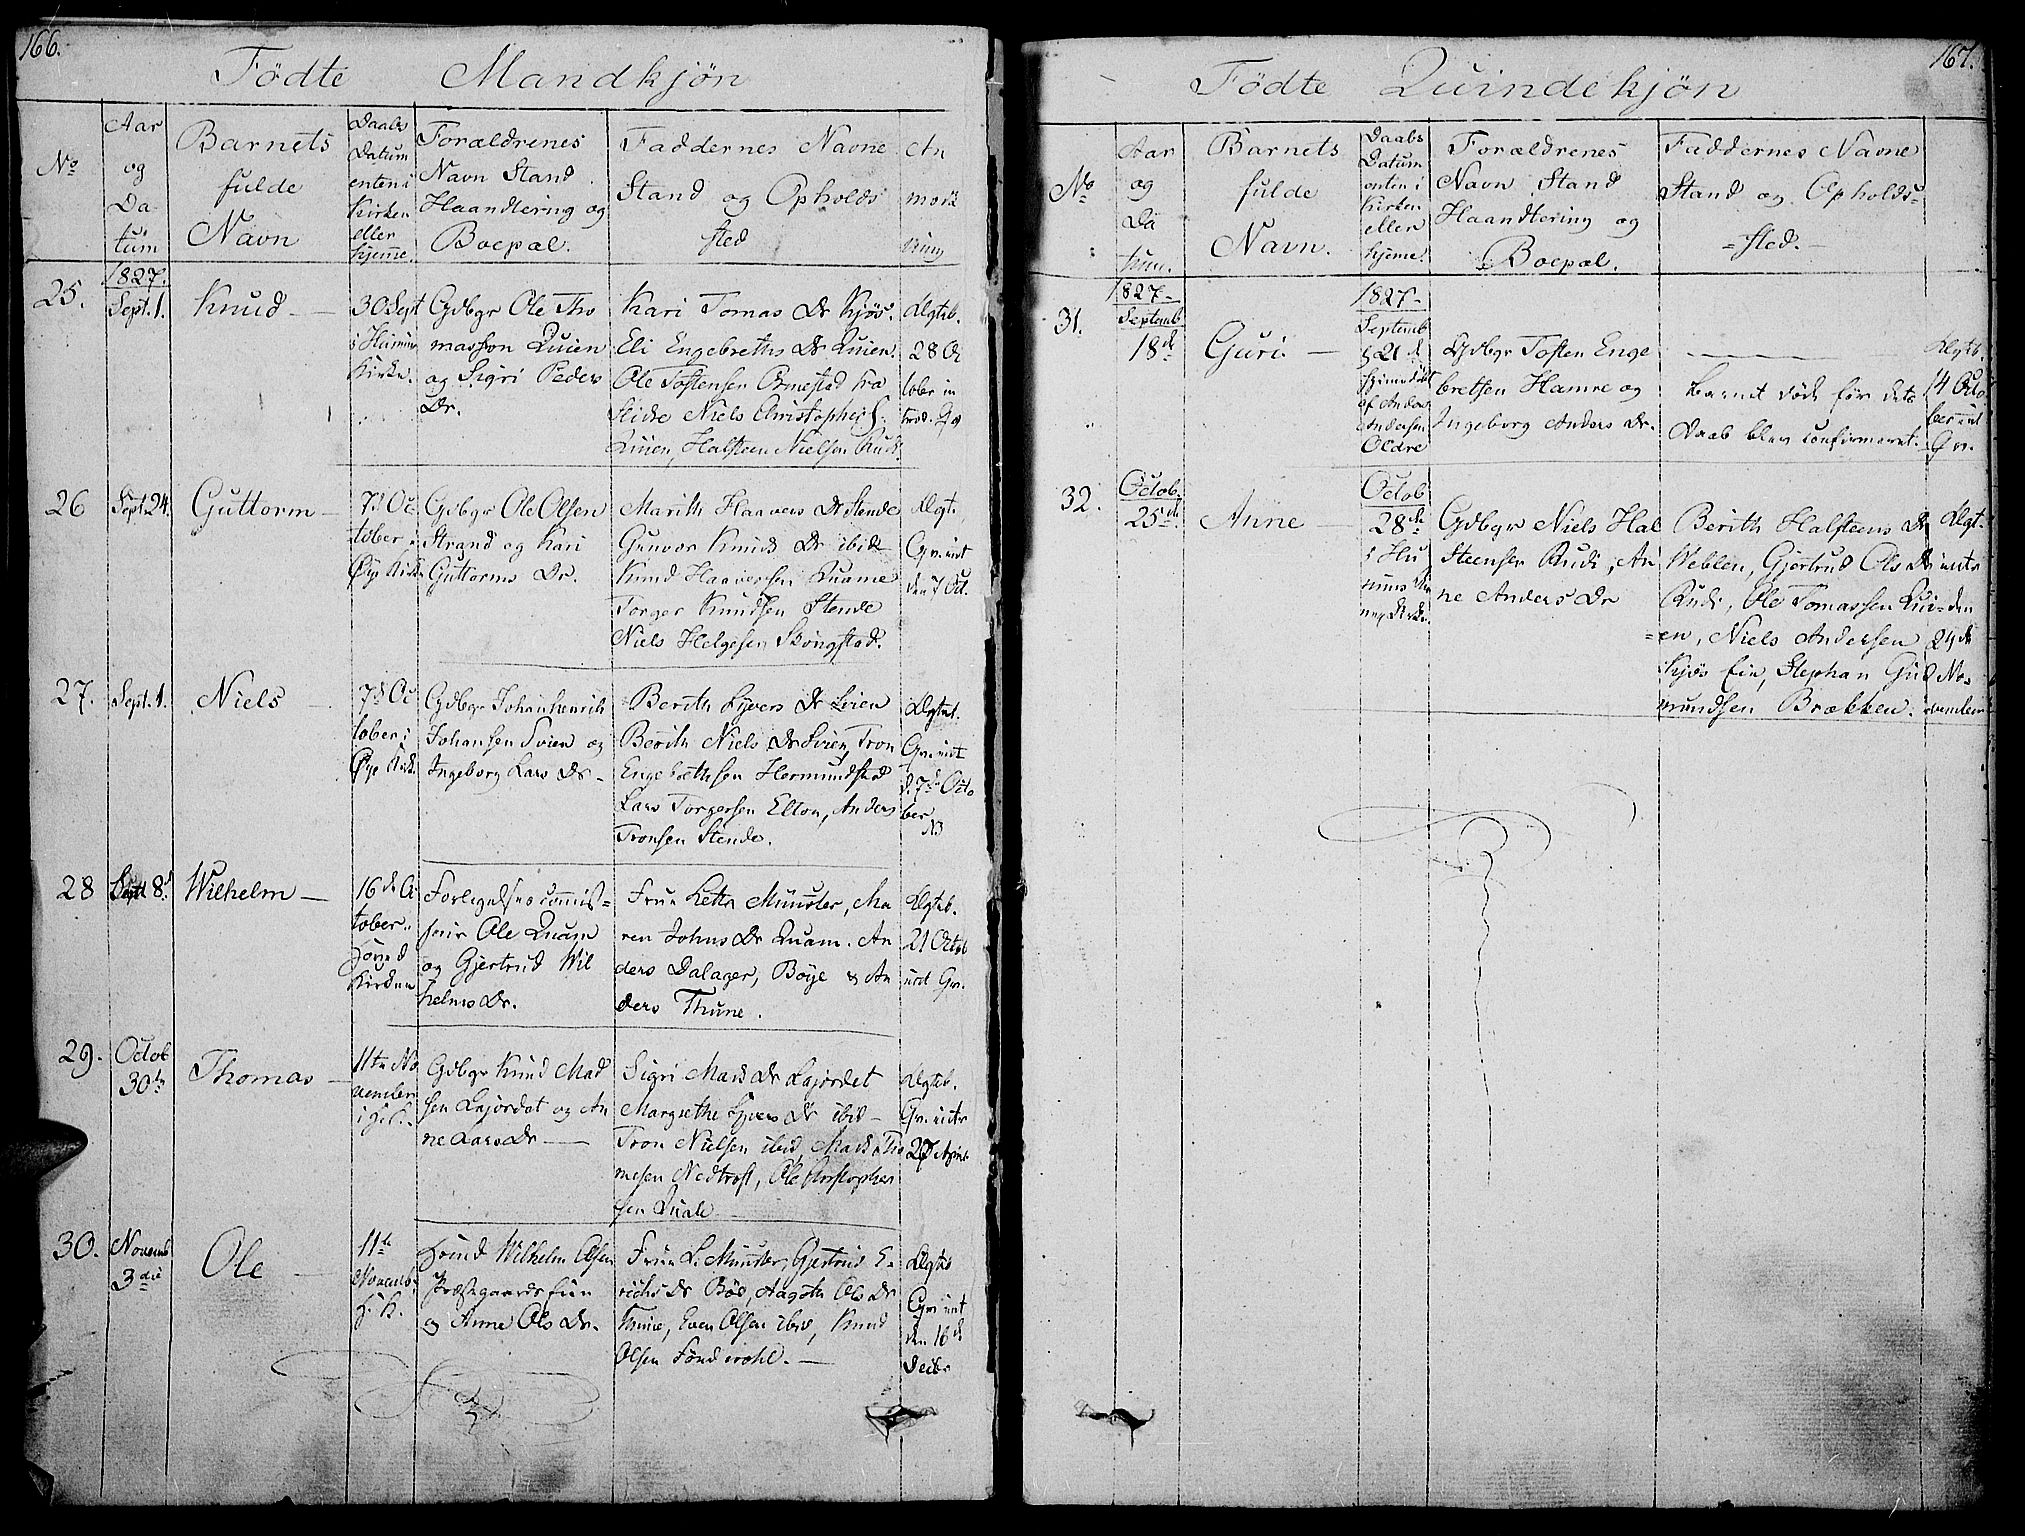 166.
Fødte Mandkjøn
No
Aar
og
Da-
tum
Barnets
fulde
Navn
Daabs
Datum
enten i
Kirken
eller
hjemme.
Forældrenes
Navn Stand
Haandtering og
Boepæl.
Faddernes Navne
Stand og Opholds
sted
An
mærk
ning
25.
1827.
Sept. 1.
Knud
30 Sept
Kirke.
Gdbgr Ole Tho
massøn Quien
og Sigri Peders
Dr.
Kari Tomas Dr Kjøs.
Eli Engebreths Dr Quien.
Ole Tostensen Ormestad fra
Slidre Niels Christophers.
Quien, Halsteen Nielsen Rudi.
Ægteb.
28 Oc
tober in
trod. Gg
26
Sept. 24.
Guttorm
7d Oc
tober i
Øye Kirk
Gdbgr Ole Olsen
Strand og Kari
Guttorms Dr.
Marith Haavers Dr Stende
Gunvor Knuds Dr ibid
Knud Haaversen Quame
Torger Knudsen Stende
Niels Helgesen Skongstad.
Ægte
Gv. int
den 7 Oct.
27.
Sept. 1.
Niels
7d Oc
tober i
Øye Kirk.
Gdbgr Johanhenrik
Johansen Svien og
Ingeborg Lars Dr.
Berith Syvers Dr Leien
Berith Niels Dr Svien, Tron
Engebrethsen Hermundstad
Lars Torgersen Elton, Anders
Tronsen Stende.
Ægtet.
Gv. int
d. 7d Octo
ber
NB
28
Sept 8d
Wilhelm
16 de Oc
tober
Kirken
Forligelsescommis=
sair Ole Quam
og Gjertrud Wil
helms Dr.
Frue Letta Münster, Ma
ren Johns Dr Quam. An
ders Dalager, Böye & An
ders Thune.
Ægteb.
21 Octob
int Gv.
29.
Octob
30te
Thomas
11te No
vember
i H.K.
Gdbgr Knud Mad
sen Lajordet og An
ne Lars Dr
Sigri Mads Dr Lajordet
Margrethe Syvers Dr ibid
Tron Nielsen ibid, Mads Tho
mesen Nedtrost, Ole Christopher
sen Quale
Ægteb.
Gv. intr
27
30.
Novemb
3die
Ole
11te
Novemb.
H. K.
Huusmd Wilhelm Olsen
Præstegaards eien
og Anne Ols Dr.
Frue L. Münster, Gjertrud E.
richs Dr Böe, Aagoth Ols Dr
Thune, Even Olsen ibid, Knud
Olsen Sönderohl.
Ægteb
Gv. int
den 16 d
Decbr
167.
Fødte Quindekjøn
No
Aar
og
Da
tum.
Barnets
fulde
Navn.
Daabs
Datum
enten i
Kirken
eller
hjeme.
Forældrenes
Navn Stand
Haandtering og
Boepæl.
Faddernes Navne
Stand og Opholds=
=sted.
31.
1827
Septemb
18d
Guri
1827
Septemb
d 21 d
hjemdöbt
af Anders
Andersen
Oldre
Gdbgr Tosten Enge
bretsen Hamre og
Ingeborg Anders Dr.
Barnet döde för dets
Daab blev confirmeret.
Ægteb.
14 Octo
ber int
Gv.
32.
Octob.
25d.
Anne
Octob
28de
i Hu
Kirke.
Gdbgr Niels Hal
Steensen Rudi, An
ne Anders Dr
Berith Halsteens Dr
Weblen, Gjertrud Ols Dr
Rudi, Ole Tomassen Qui=
=en, Niels Andersen
Kjös Eie, Stephan Gud
mundsen Brækken.
Ægt.
intr
den
24d
No=
vember